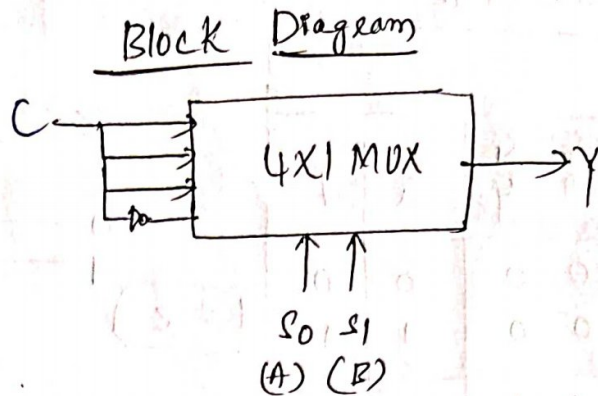 Block Diagram
C
4X1 MUX
Y
S0 S1
(A) (B)